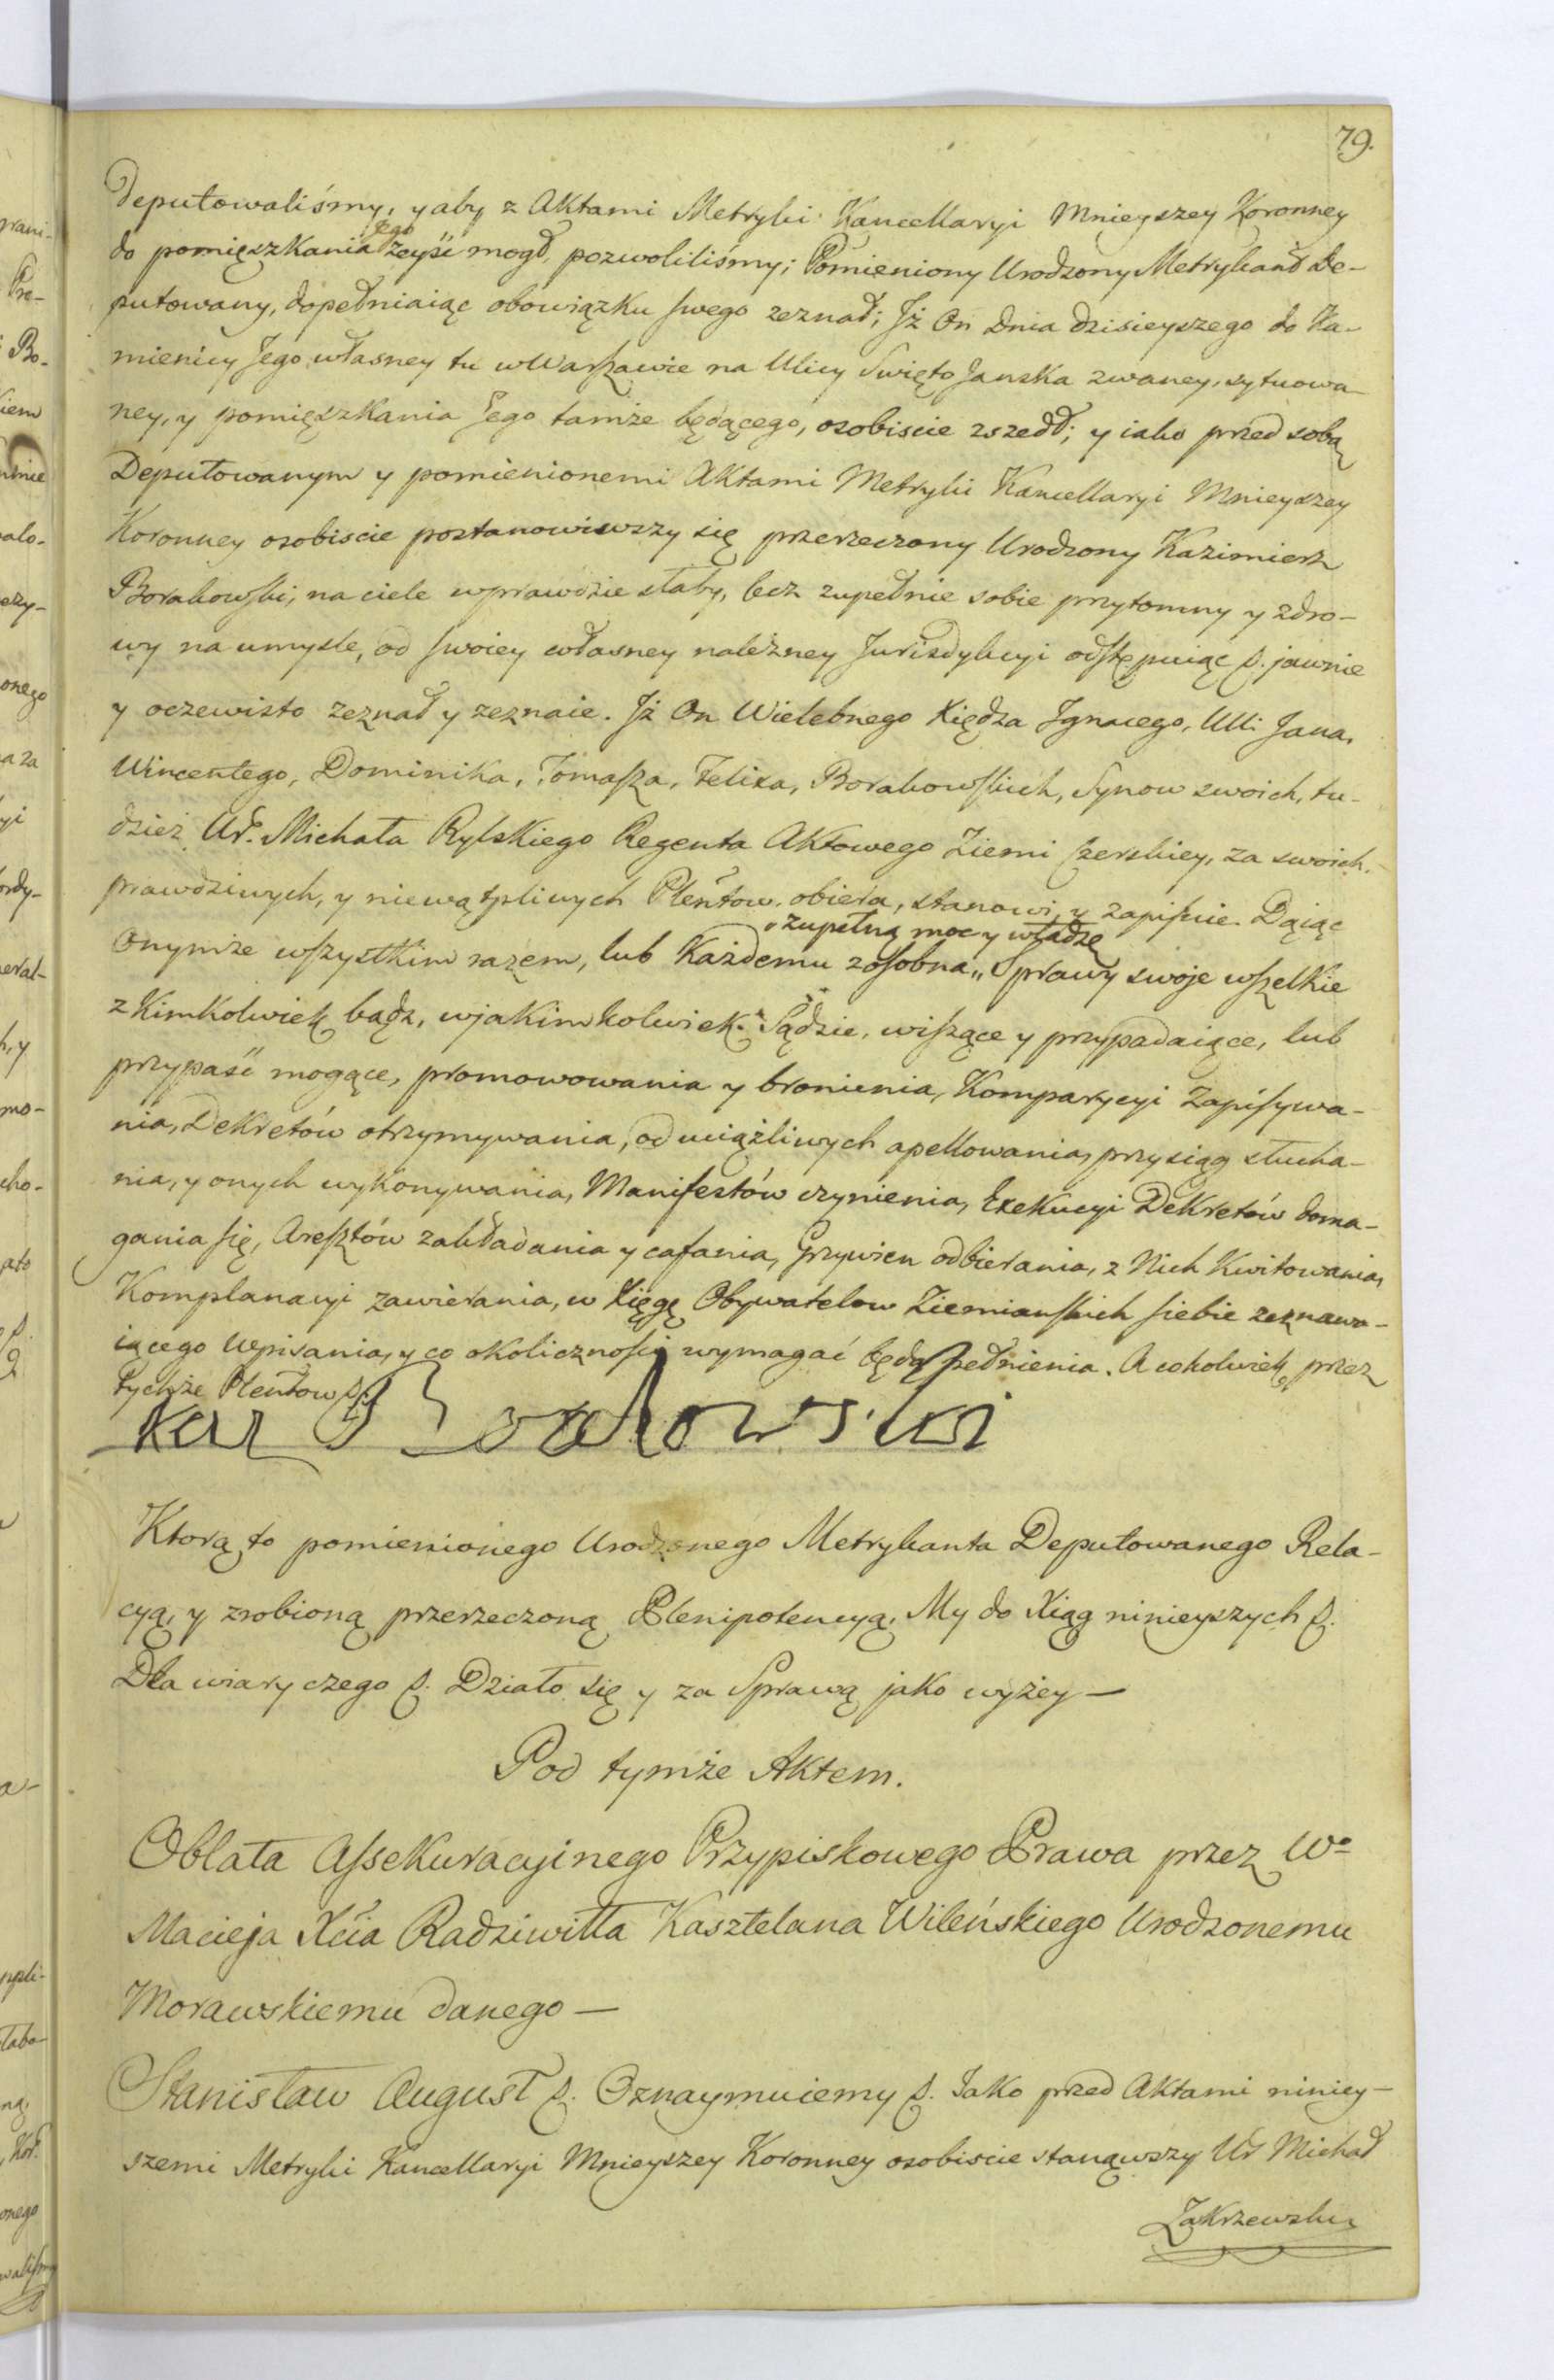 79.
deputowaliśmy, y aby z Aktami Metryki Kancellaryi Mnieyszey Koronney
do pomięszkania Jego zeyść mogł, pozwoliliśmy; Pomieniony Urodzony Metrykant De-
putowany, dopełniaiąc obowiązku swego zeznał; Jż On dnia dzisieyszego do Ka-
mienicy Jego własney tu w Warszawie na Ulicy Swięto Janska zwaney, sytuowa-
ney, y pomięszkania Jego tamże będącego, osobiscie zszedł; y iako przed sobą
Deputowanym y pomienionemi Aktami Metryki Kancellaryi Mnieyszey
Koronney osobiscie postanowiwszy się przerzeczony Urodzony Kazimierz
Borakowski, na ciele wprawdzie słaby, lecz zupełnie sobie przytomny y zdro-
wy na umysle, od swoiey własney należney Jurisdykcyi odstępuiąc p. jawnie
y oczewisto zeznał y zeznaie. Jż On Wielebnego Xiędza Jgnacego, UU: Jana,
Wincentego, Dominika, Tomasza, Felixa, Borakowskich, Synow swoich, tu-
dzież Ur. Michała Rylskiego Regenta Aktowego Ziemi Czerskiey, za swoich
prawdziwych, y niewątpliwych Plentow obiera, stanowi, y zapisuie. Daiąc
Onymże wszystkim razem, lub Każdemu z osobna „ zupełną moc y władzę „ Sprawy swoje wszelkie
z Kimkolwiek bądz, w jakimkolwiek Sądzie, wiszące y przypadaiące, lub
przypaść mogące, promowowania y bronienia, Komparycyi Zapisywa-
nia, Dekretów otrzymywania, od uciążliwych apellowania, przysiąg słucha-
nia, y onych wykonywania, Manifestów czynienia, Exekucyi Dekretów doma-
gania się, Aresztów zakładania y cafania, Grzywien odbierania, z Nich Kwitowania,
Komplanacyi zawierania, w Xięgę Obywatelow Ziemianskich siebie zeznawa-
iącego wpisania, y co okoliczności wymagać będą pełnienia. A cokolwiek przez
tychże Plentow p.
Kaz Borakowski
Ktorą to pomienionego Urodzonego Metrykanta Deputowanego Rela-
cyą, y zrobioną przerzeczoną Plenipotencyą, My do Xiąg ninieyszych p.
Dla wiary czego p. Działo się y za Sprawą jako wyżey —
Pod tymże Aktem.
Oblata Assekuracyinego Przypiskowego Prawa przez Wo
Macieja Xcia Radziwiłła Kasztelana Wileńskiego Urodzonemu
Morawskiemu danego —
Stanisław August p. Oznaymuiemy p. Jako przed Aktami niniey-
szemi Metryki Kancellaryi Mnieyszey Koronney osobiscie stanąwszy Ur Michał
Zakrzewski